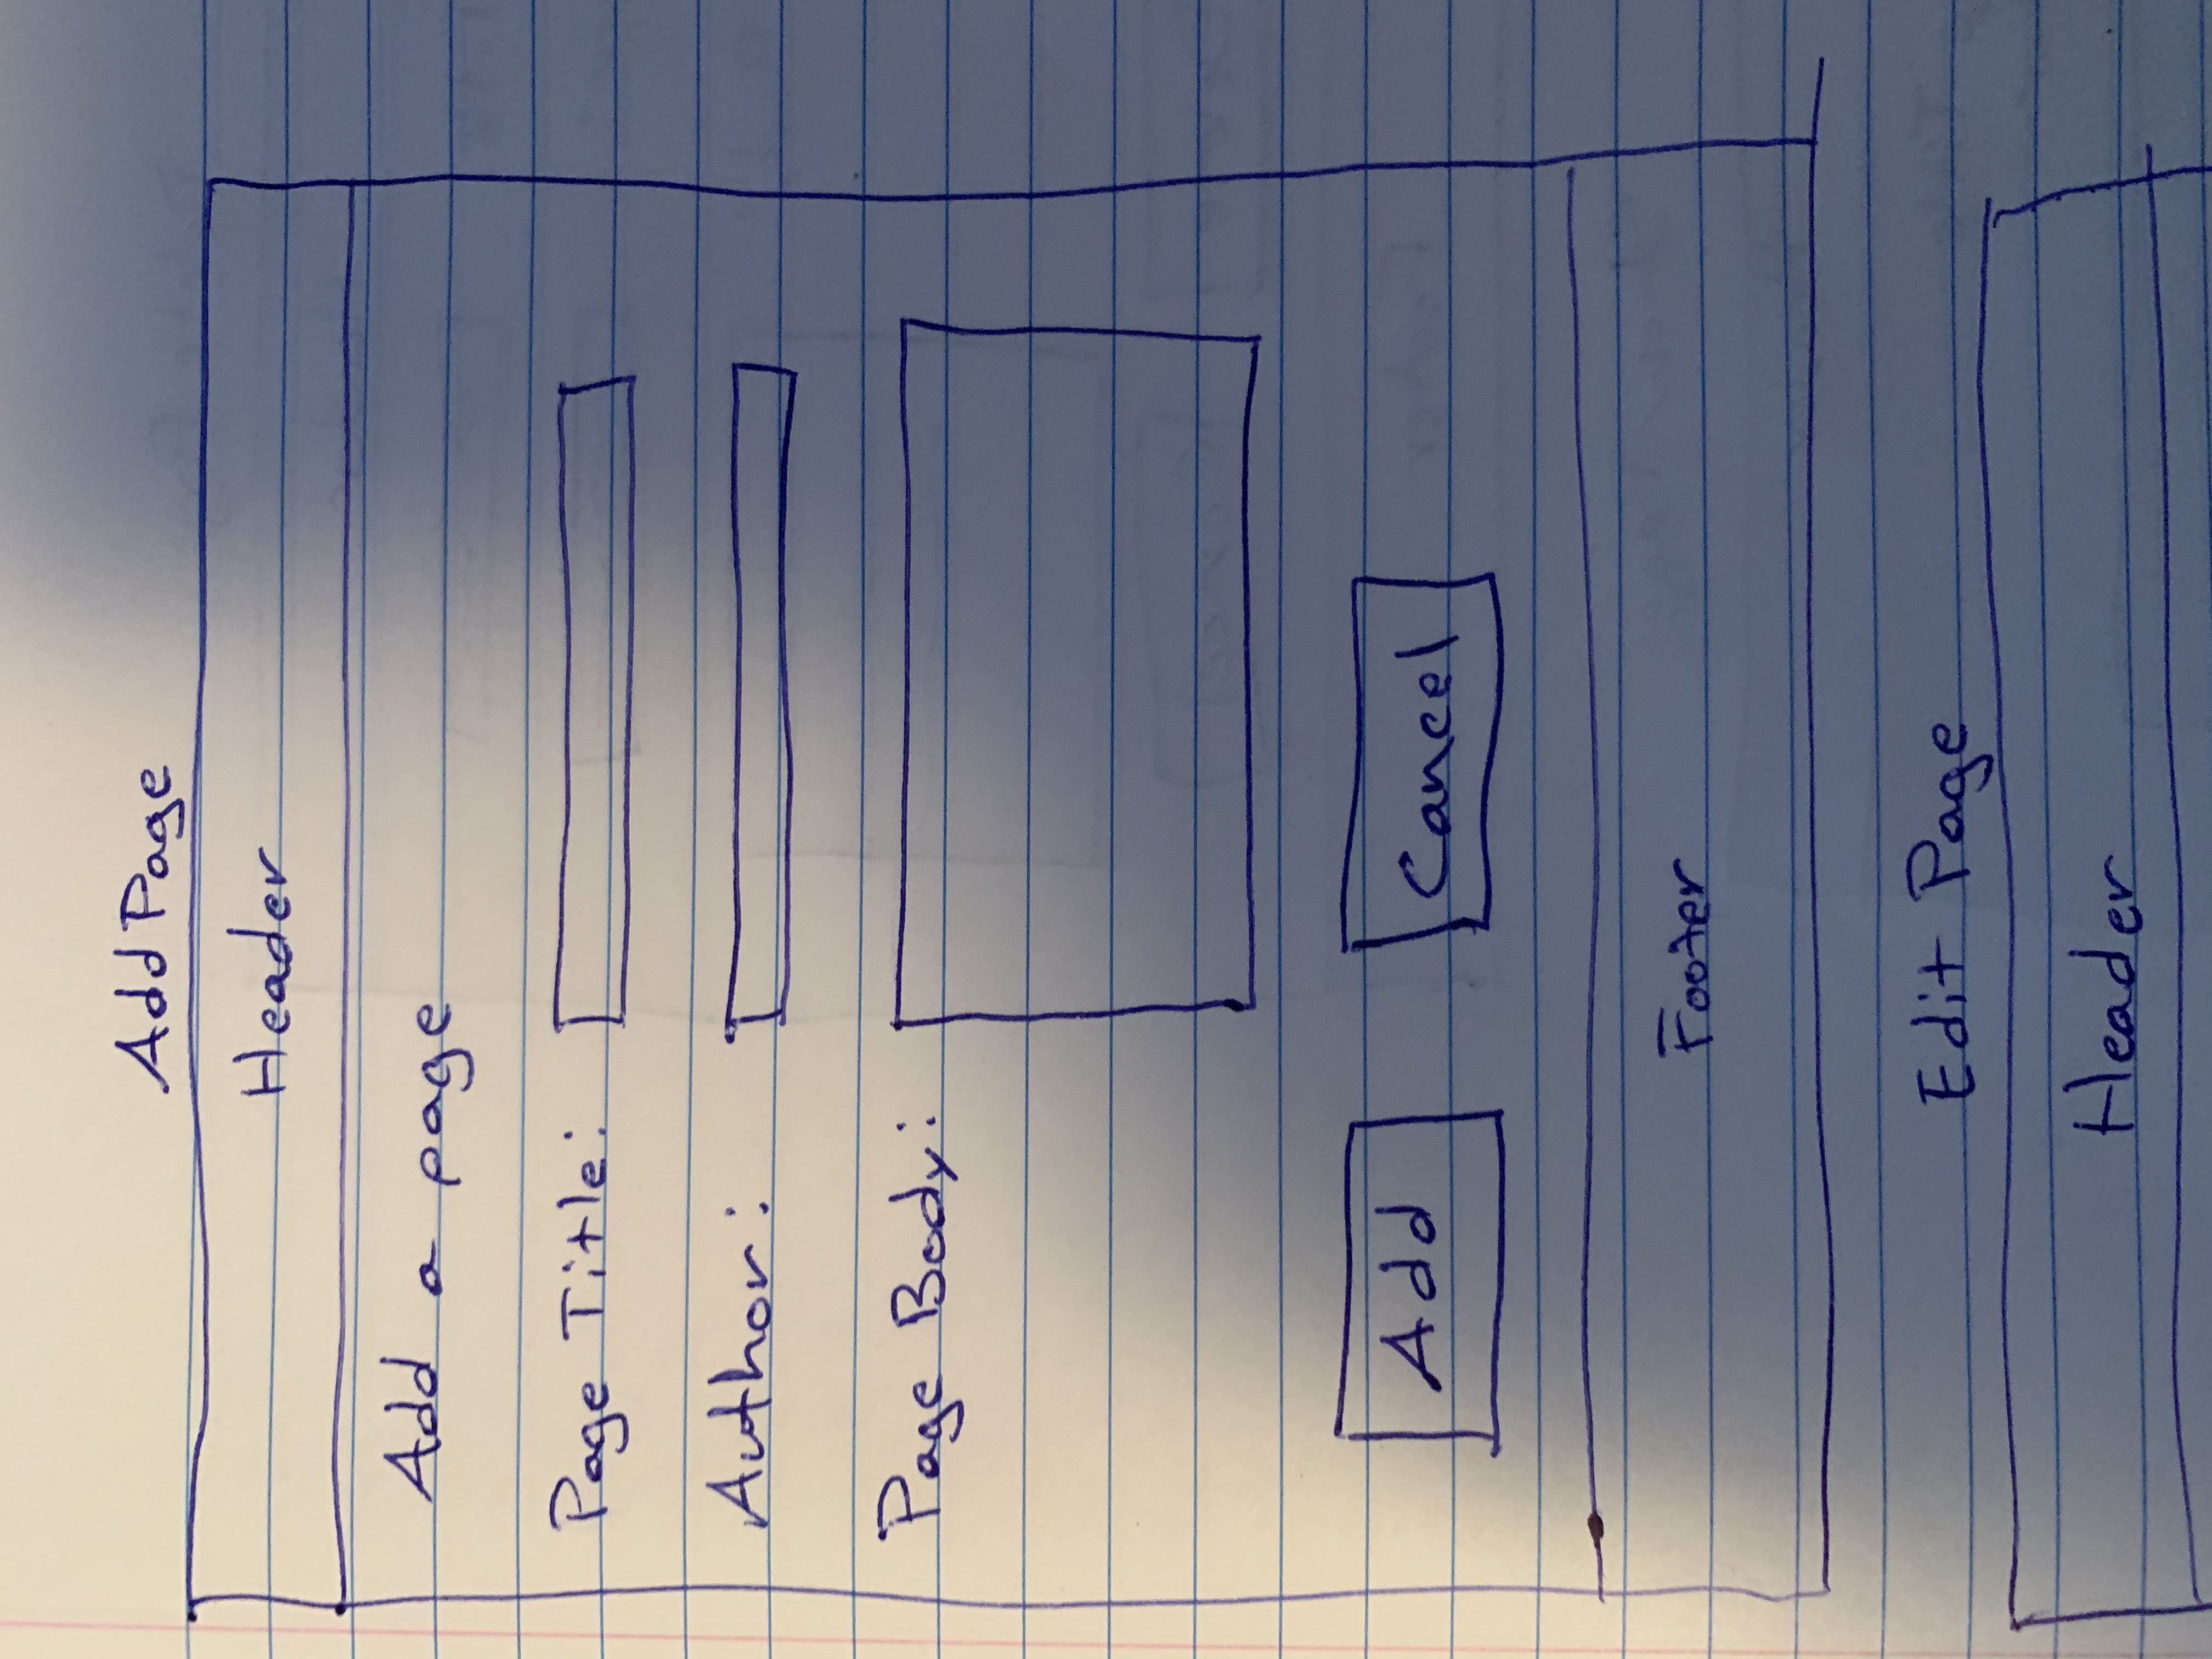 Add Page
Header
Add a page
Page Title:
Author:
Page Body:
Add Cancel
Footer
Edit Page
Header